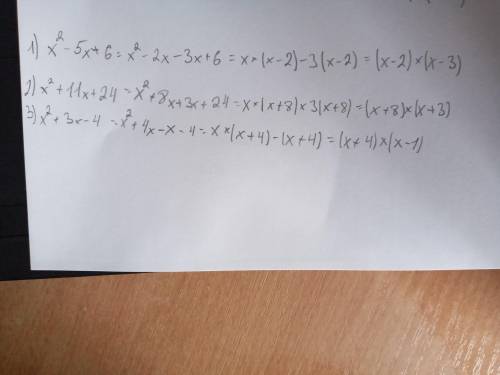 1) x² - 5x + 6 = x² - 2x - 3x + 6 = x × (x - 2) - 3(x - 2) = (x - 2) × (x - 3)
2) x² + 11x + 24 = x² + 8x + 3x + 24 = x × (x + 8) × 3(x + 8) = (x + 8) × (x + 3)
3) x² + 3x - 4 = x² + 4x - x - 4 = x × (x + 4) - (x + 4) = (x + 4) × (x - 1)